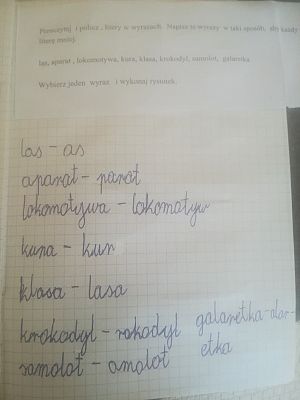 Przeczytaj i policz , litery w wyrazach. Napisz te wyrazy w taki sposób, aby każdy
literę mniej.
las, aparat , lokomotywa, kura, klasa, krokodyl, samolot, galaretka
Wybierz jeden wyraz i wykonaj rysunek.
las - as
aparat - parat
lokomotywa - lokomotyw
kura - kur
klasa - lasa
krokodyl - rokodyl galaretka - alar-
samolot - amolot etka